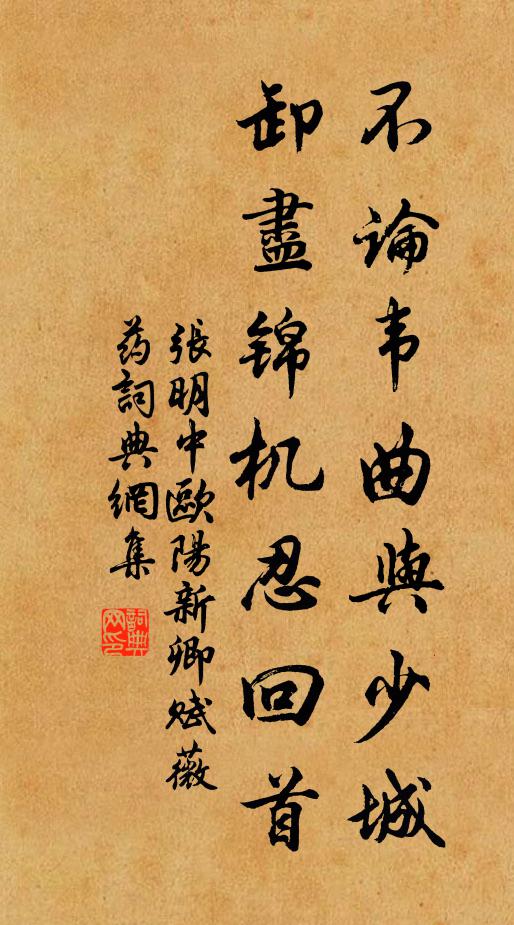 不論韦曲與少城
卸盡锦机忍回首
張明中歐陽新卿赋薇
药詞典網集
詞典网印